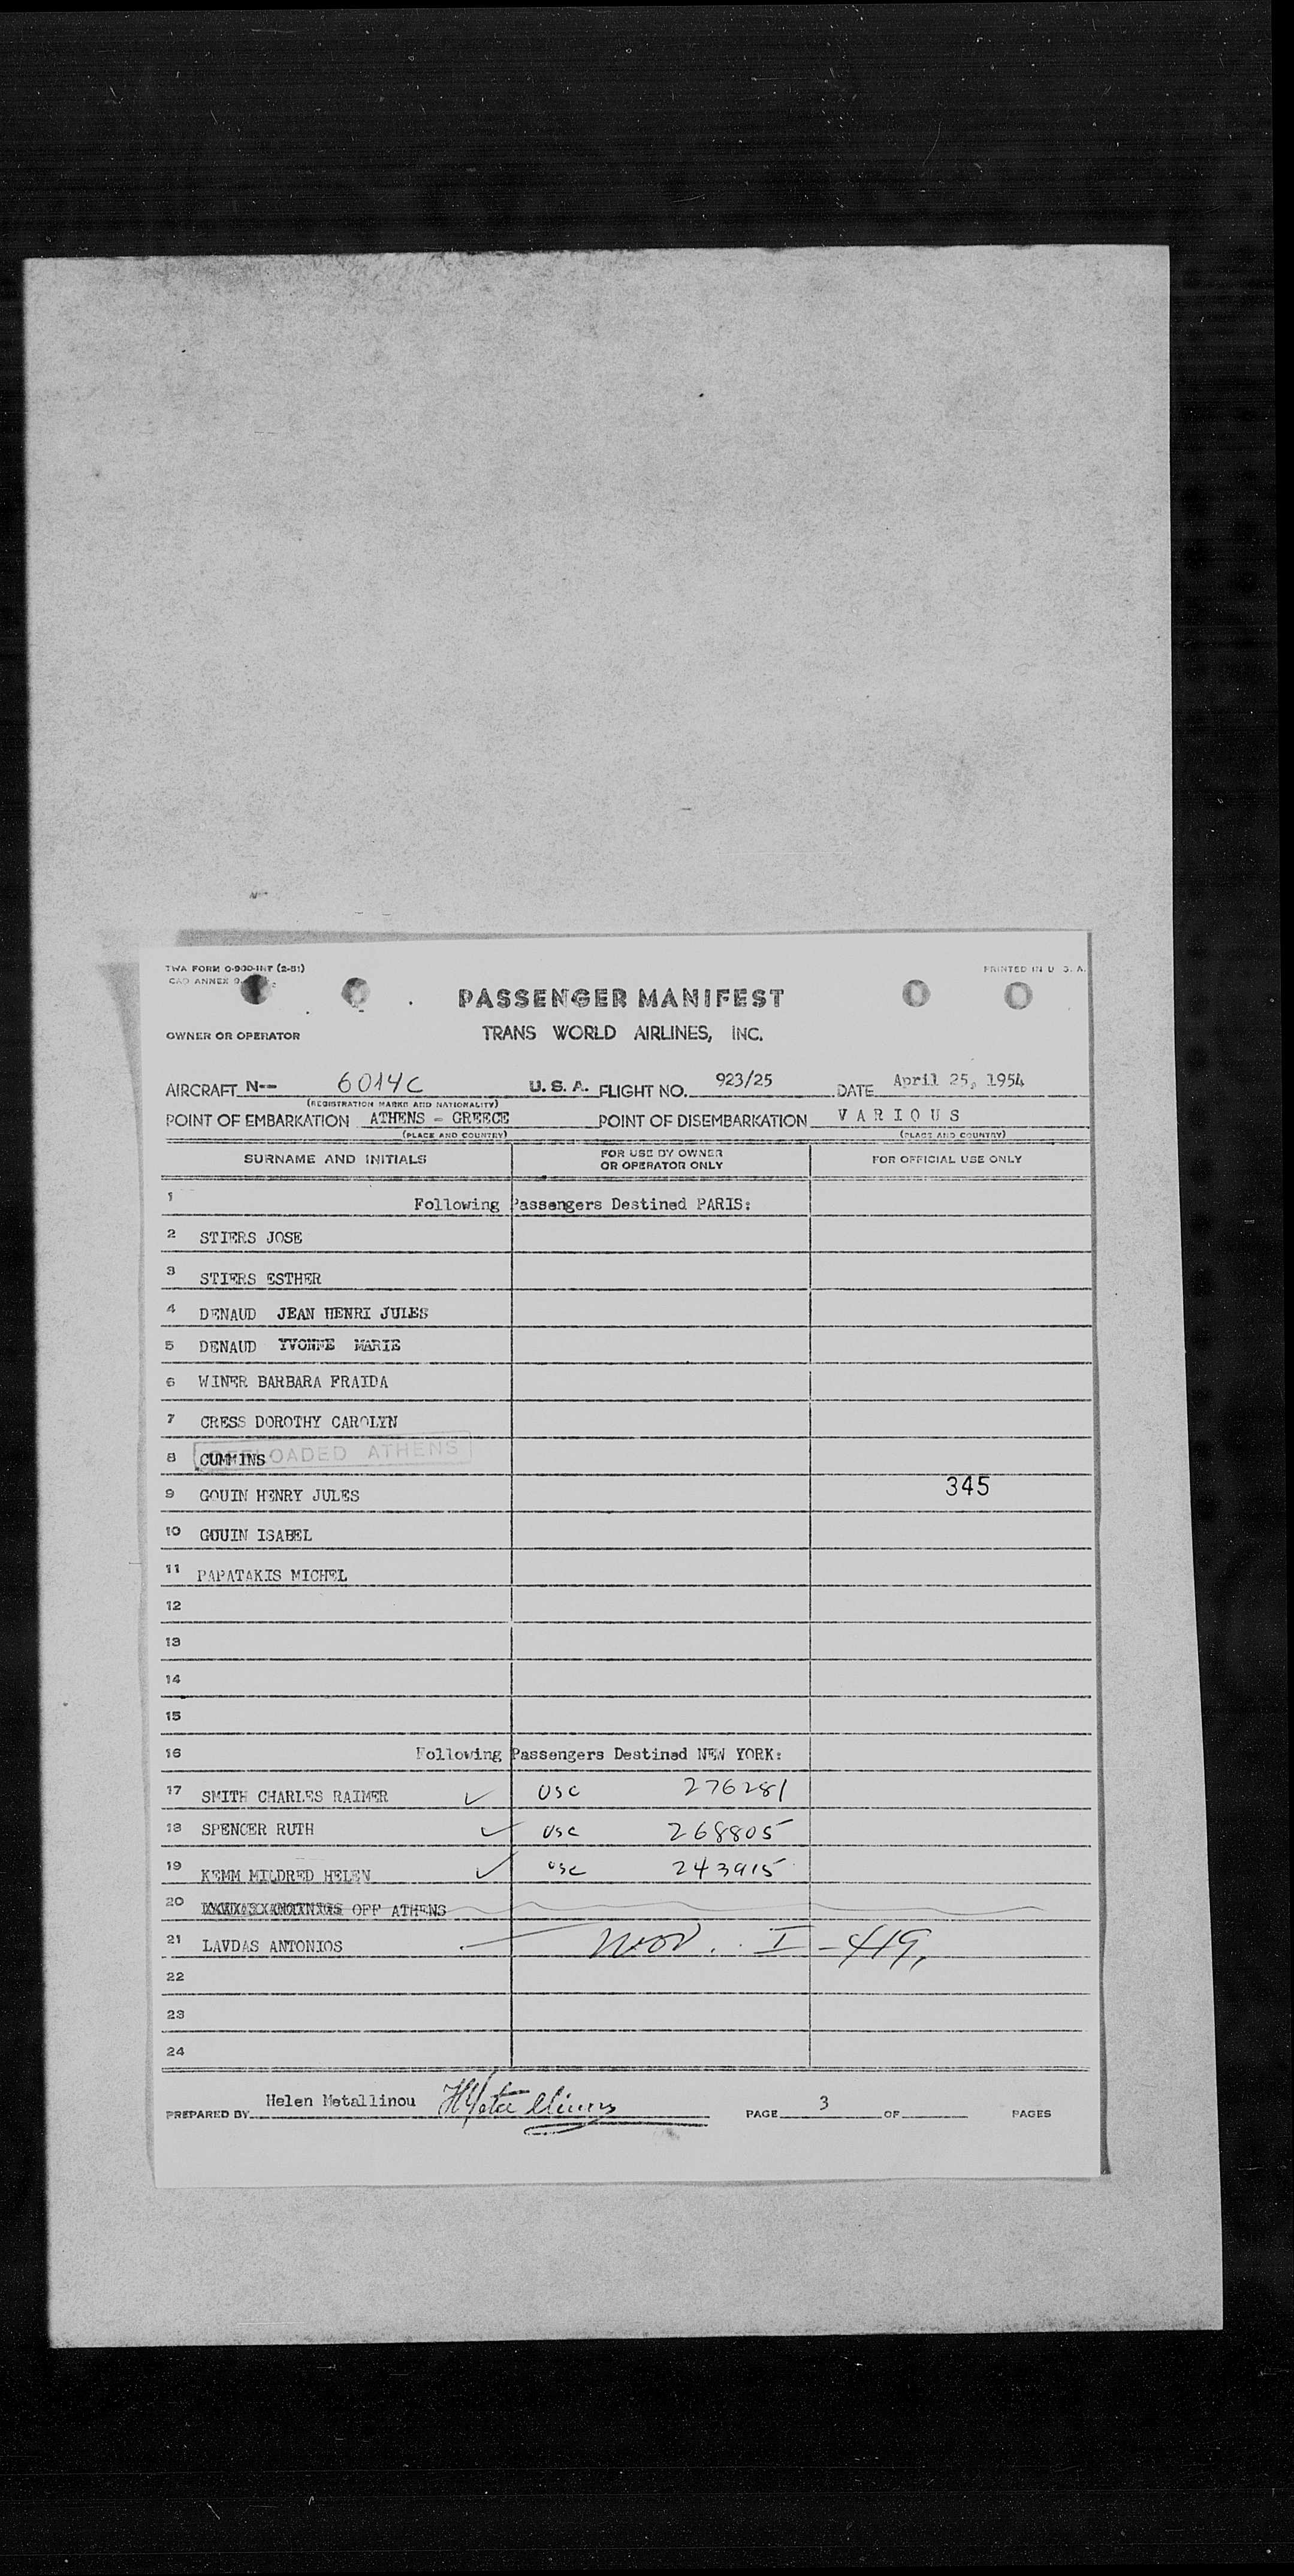 TWA FORM O-900-INT (2-51)
CAO ANNEX 9
PRINTED IN U. S. A.
PASSENGER MANIFEST
OWNER OR OPERATOR TRANS WORLD AIRLINES, INC.
AIRCRAFT N-- 6014C U. S. A. FLIGHT NO. 923/25 DATE April 25, 1954
(REGISTRATION MARKS AND NATIONALITY)
POINT OF EMBARKATION ATHENS - GREECE POINT OF DISEMBARKATION V A R I O U S
(PLACE AND COUNTRY) (PLACE AND COUNTRY)
SURNAME AND INITIALS FOR USE BY OWNER OR OPERATOR ONLY FOR OFFICIAL USE ONLY
1 Following Passengers Destined PARIS:
2 STIERS JOSE
3 STIERS ESTHER
4 DENAUD JEAN HENRI JULES
5 DENAUD YVONNE MARIE
6 WINER BARBARA FRAIDA
7 CRESS DOROTHY CAROLYN
OFFLOADED ATHENS
8 CUMMINS
9 GOUIN HENRY JULES 345
10 GOUIN ISABEL
11 PAPATAKIS MICHEL
12
13
14
15
16 Following Passengers Destined NEW YORK:
17 SMITH CHARLES RAIMER ✓ USC 276281
18 SPENCER RUTH ✓ USC 268805
19 KEMM MILDRED HELEN ✓ USC 243915
20 OFF ATHENS
21 LAVDAS ANTONIOS I - 419,
22
23
24
PREPARED BY Helen Metallinou HMetallinou PAGE 3 OF PAGES